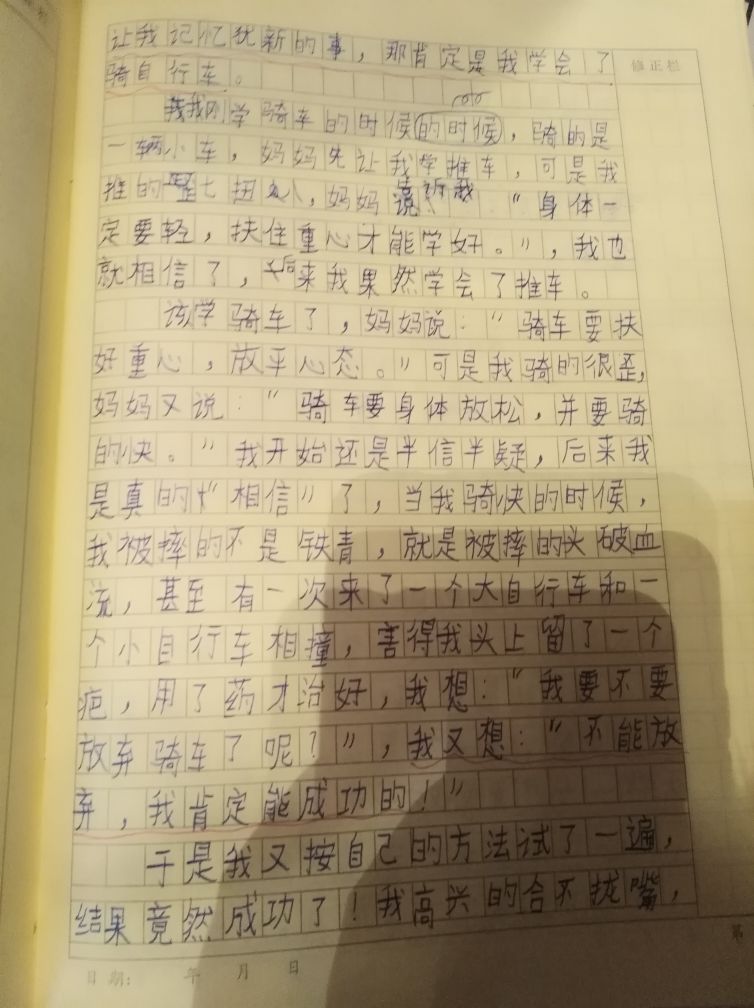 让我记忆犹新的事，那肯定是我学会了
修正栏
骑自行车。
我刚学骑车的时候(的时候)，骑的是
一辆小车，妈妈先让我学推车，可是我
推的七扭八，妈妈告诉我："身体一
定要轻，扶住重心才能学好。"，我也
就相信了，后来我果然学会了推车。
该学骑车了，妈妈说："骑车要扶
好重心，放平心态。"可是我骑的很歪，
妈妈又说："骑车要身体放松，并要骑
的快。"我开始还是半信半疑，后来我
是真的"相信"了，当我骑快的时候，
我被摔的不是铁青，就是被摔的头破血
流，甚至有一次来了一个大自行车和一
个小自行车相撞，害得我头上留了一个
疤，用了药才治好，我想："我要不要
放弃骑车了呢？"，我又想："不能放
弃，我肯定能成功的！"
于是我又按自己的方法试了一遍，
结果竟然成功了！我高兴的合不拢嘴，
第
日期： 年 月 日